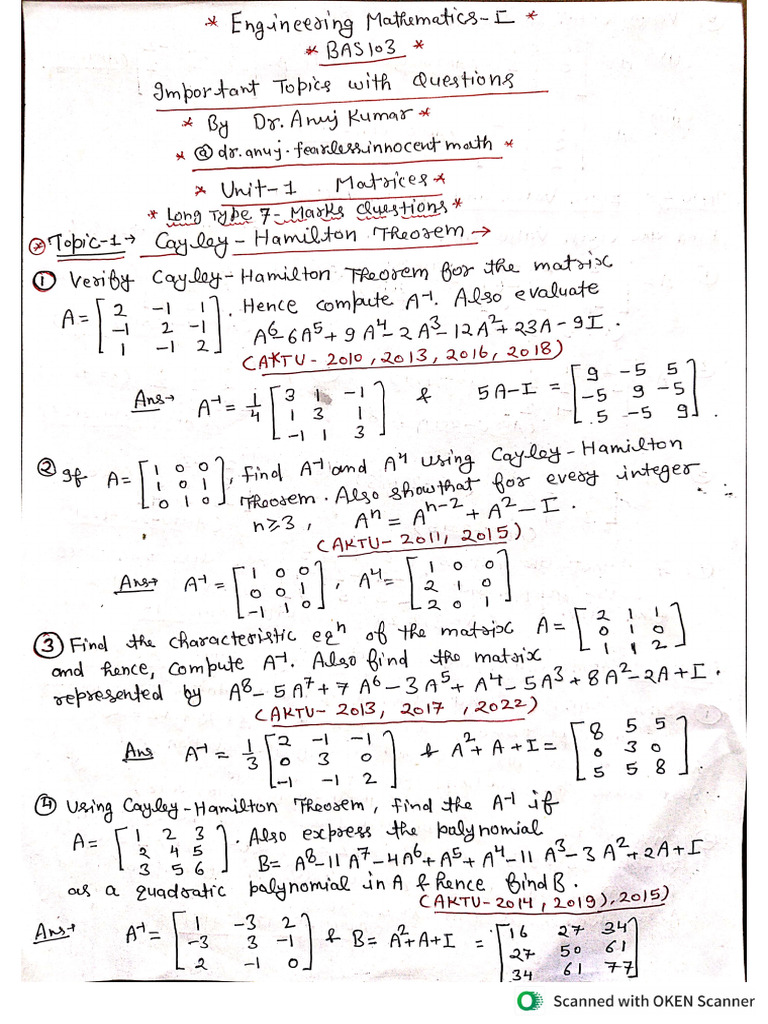 * Engineering Mathematics-I *
* BAS103 *
Important Topics with Questions
* By Dr. Anuj Kumar *
* @dr.anuj.fearlessinnocentmath *
* Unit-1 Matrices *
* Long Type 7-Marks Questions *
* Topic-1 → Cayley-Hamilton Theorem →
① Verify Cayley-Hamilton Theorem for the matrix
A = [2 -1 1; -1 2 -1; 1 -1 2]. Hence compute A⁻¹. Also evaluate
A⁶-6A⁵+9A⁴-2A³-12A²+23A-9I.
(AKTU-2010, 2013, 2016, 2018)
Ans→ A⁻¹ = 1/4 [3 1 -1; 1 3 1; -1 1 3] & 5A-I = [9 -5 5; -5 9 -5; 5 -5 9].
② If A = [1 0 0; 1 0 1; 0 1 0], find A⁻¹ and A⁴ using Cayley-Hamilton
Theorem. Also show that for every integer
n≥3, Aⁿ = Aⁿ⁻² + A² - I.
(AKTU-2011, 2015)
Ans→ A⁻¹ = [1 0 0; 0 0 1; -1 1 0], A⁴ = [1 0 0; 2 1 0; 2 0 1]
③ Find the characteristic eqⁿ of the matrix A = [2 1 1; 0 1 0; 1 1 2]
and hence, compute A⁻¹. Also find the matrix
represented by A⁸-5A⁷+7A⁶-3A⁵+A⁴-5A³+8A²-2A+I.
(AKTU-2013, 2017, 2022)
Ans A⁻¹ = 1/3 [2 -1 -1; 0 3 0; -1 -1 2] & A²+A+I = [8 5 5; 0 3 0; 5 5 8].
④ Using Cayley-Hamilton Theorem, find the A⁻¹ if
A = [1 2 3; 2 4 5; 3 5 6]. Also express the polynomial
B = A⁸-11A⁷-4A⁶+A⁵+A⁴-11A³-3A²+2A+I
as a quadratic polynomial in A & hence find B.
(AKTU-2014, 2019), 2015)
Ans→ A⁻¹ = [1 -3 2; -3 3 -1; 2 -1 0] & B = A²+A+I = [16 27 34; 27 50 61; 34 61 77]
Scanned with OKEN Scanner